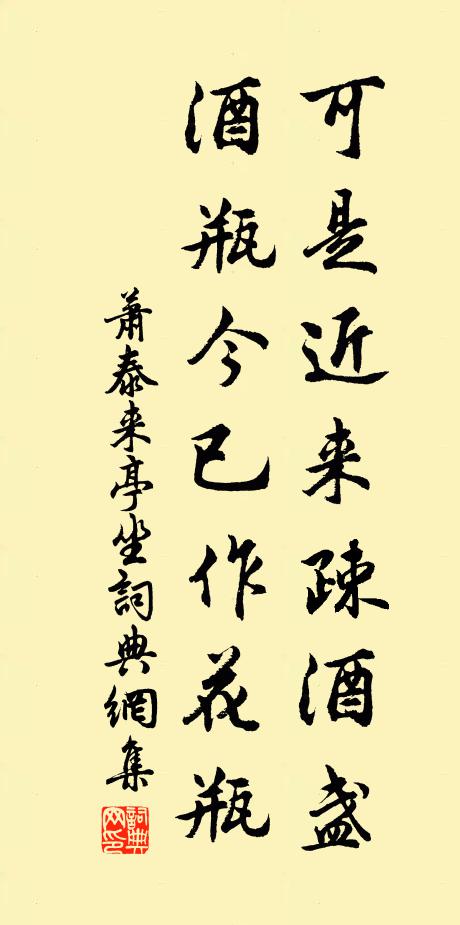 可是近来疎酒盏
酒瓶今已作花瓶
萧泰来亭坐詞典網集
詞典网印